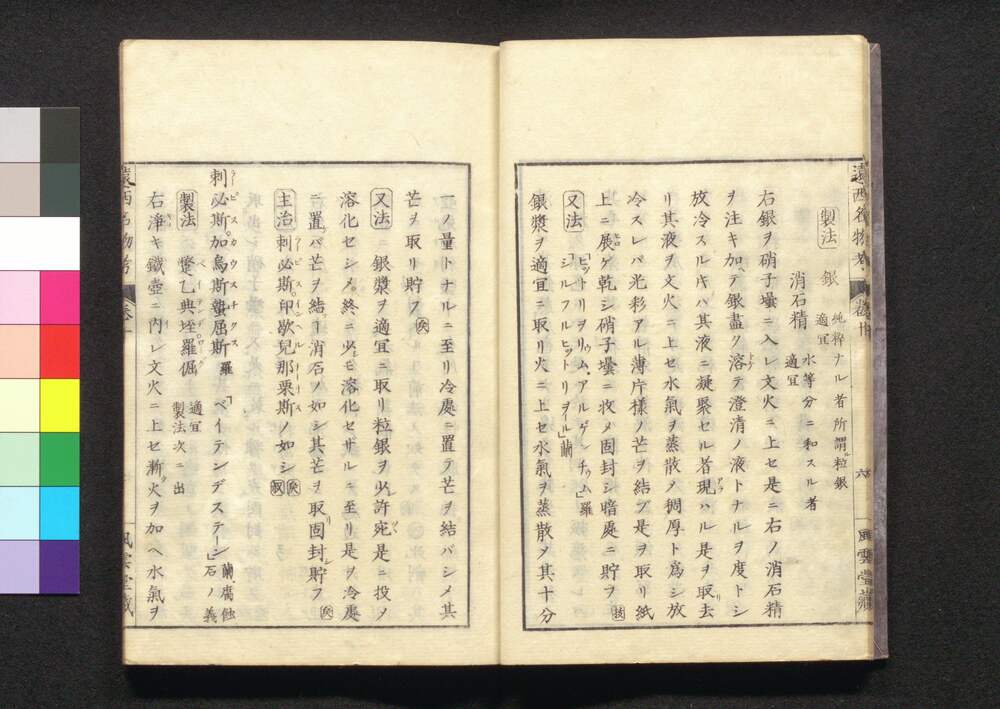 遠西名物考
六
風雲堂蔵
製法 銀 純粹ナル者所謂ル粒銀
適宜
消石精 水等分ニ和スル者
適宜
右銀ヲ硝子壜ニ入レ文火ニ上セ是ニ右ノ消石精
ヲ注キ加ヘテ銀盡ク溶テ澄清ノ液トナルヲ度トシ
放冷スルキハ其液ニ凝聚セル者現ハル是ヲ取リ去
リ其液ヲ文火ニ上セ水氣ヲ蒸散メ稠厚ト爲シ放
冷スレバ光彩アル薄片様ノ芒ヲ結ブ是ヲ取リ紙
上ニ展ゲ乾シ硝子壜ニ收メ固封シ暗處ニ貯ヲ
又法 「ヒットリヲリウム、アルゲンチウム」羅
「シルフルヒットリヲール」蘭
銀漿ヲ適宜ニ取リ火ニ上セ水氣ヲ蒸散メ其十分
一ノ量トナルニ至リ冷處ニ置テ芒ヲ結バシメ其
芒ヲ取リ貯フ
又法 銀漿ヲ適宜ニ取リ粒銀ヲ少許宛是ニ投メ
溶化セシメ終ニ少モ溶化セザルニ至リ是ヲ冷處
ニ置バ芒ヲ結ブ消石ノ如シ其芒ヲ取リ固封シ貯フ
主治 刺必斯印歇兒那栗斯ノ如シ
刺必斯加烏斯蟄屈斯 羅 「ベイテンデステーン」 蘭腐蝕
石ノ義
製法 蟞乙典垤羅倔 適宜
製法次ニ出
右淨キ鐵壺ニ内レ文火ニ上セ漸々火ヲ加ヘ水氣ヲ
遠西名物考
風雲堂蔵